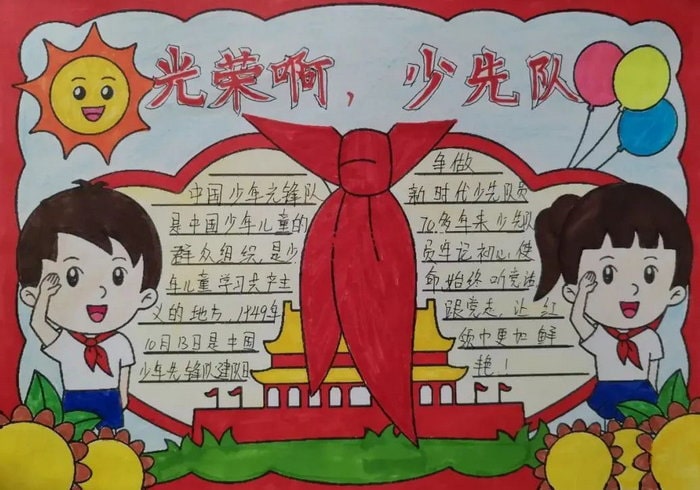 光荣啊，少先队
中国少年先锋队
是中国少年儿童的
群众组织，是少
年儿童学习共产主
义的地方 1949年
10月13日是中国
少年先锋队建队日
争做
新时代少先队员
70多年来少先队
员牢记初心、使
命始终听党话
跟党走，让红
领巾更加鲜
艳！